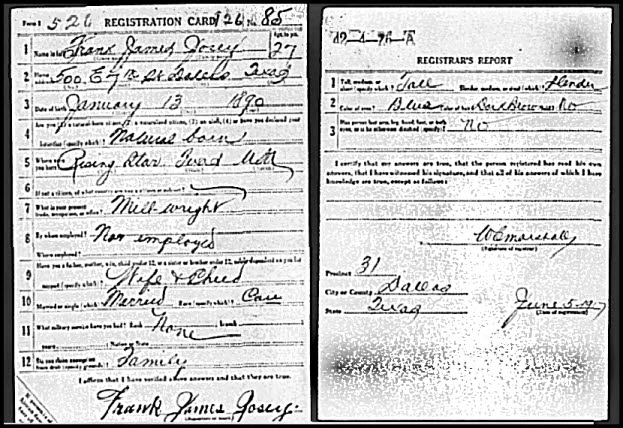 Form 1 526 REGISTRATION CARD 126 No. 85
1 Name in full Frank James Josey Age, in yrs. 27
2 Home address 500 E 7th St Dallas Texas
3 Date of birth January 13 1890
4 Are you (1) a natural-born citizen, (2) a naturalized citizen, (3) an alien, (4) or have you declared your
intention (specify which)? Natural born
5 Where were you born? Rising Star Texas USA
6 If not a citizen, of what country are you a citizen or subject?
7 What is your present trade, occupation, or office? Millwright
8 By whom employed? Non employed
Where employed?
9 Have you a father, mother, wife, child under 12, or a sister or brother under 12, solely dependent on you for
support (specify which)? Wife & Child
10 Married or single (which)? Married Race (specify which)? Cau
11 What military service have you had? Rank None branch
years Nation or State
12 Do you claim exemption from draft (specify grounds)? Family
I affirm that I have verified above answers and that they are true.
Frank James Josey
REGISTRAR'S REPORT
1 Tall, medium, or short (specify which)? Tall Slender, medium, or stout (which)? Slender
2 Color of eyes? Blue Color of hair? Dark Brown Bald? No
3 Has person lost arm, leg, hand, foot, or both eyes, or is he otherwise disabled (specify)? No
I certify that my answers are true, that the person registered has read his own
answers, that I have witnessed his signature, and that all of his answers of which I have
knowledge are true, except as follows:
W C Marshall
(Signature of registrar)
Precinct 31
City or County Dallas
State Texas June 5-1917
(Date of registration)